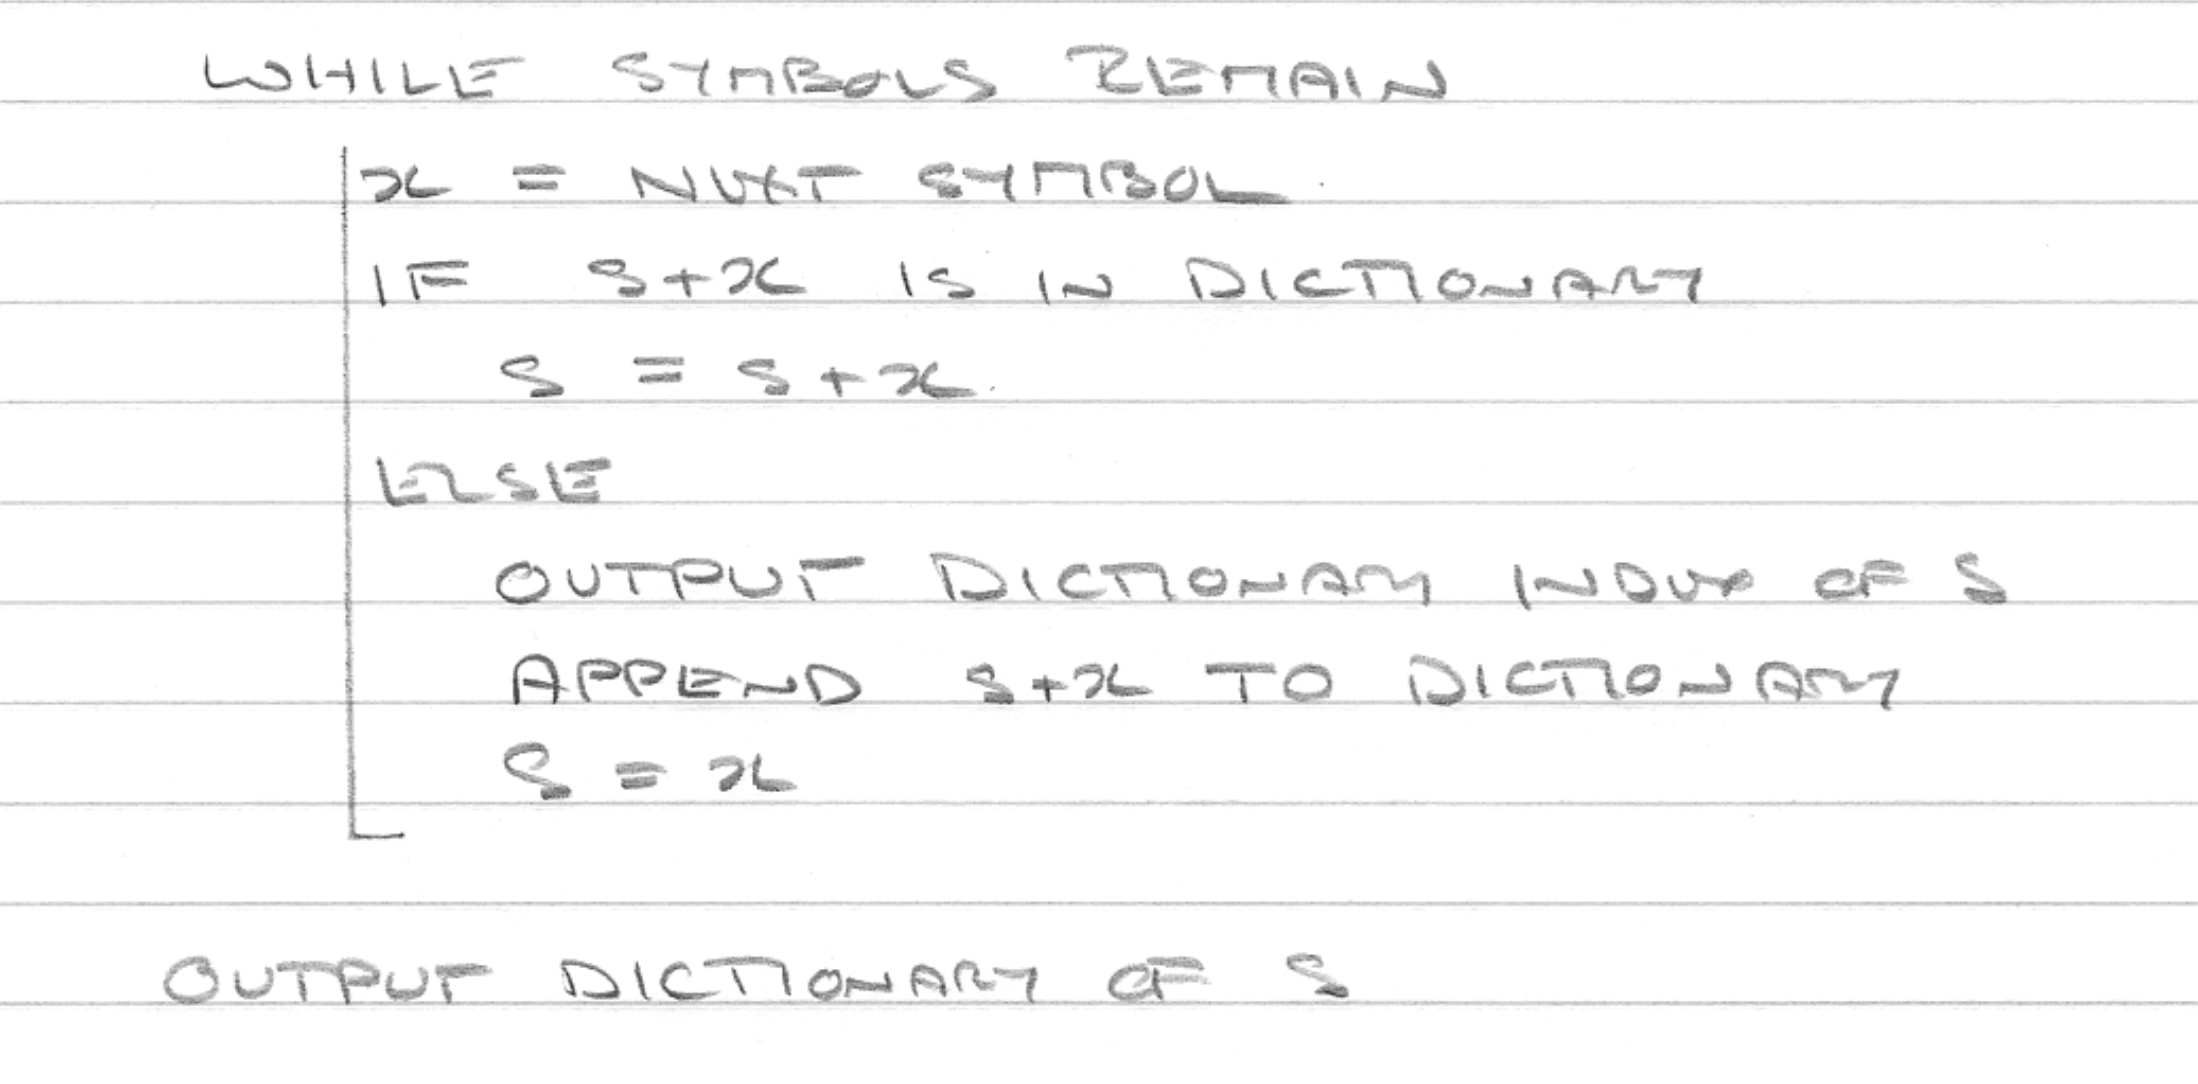 WHILE SYMBOLS REMAIN
x = NEXT SYMBOL
IF S+x IS IN DICTIONARY
S = S+x
ELSE
OUTPUT DICTIONARY INDEX OF S
APPEND S+x TO DICTIONARY
S = x
OUTPUT DICTIONARY OF S